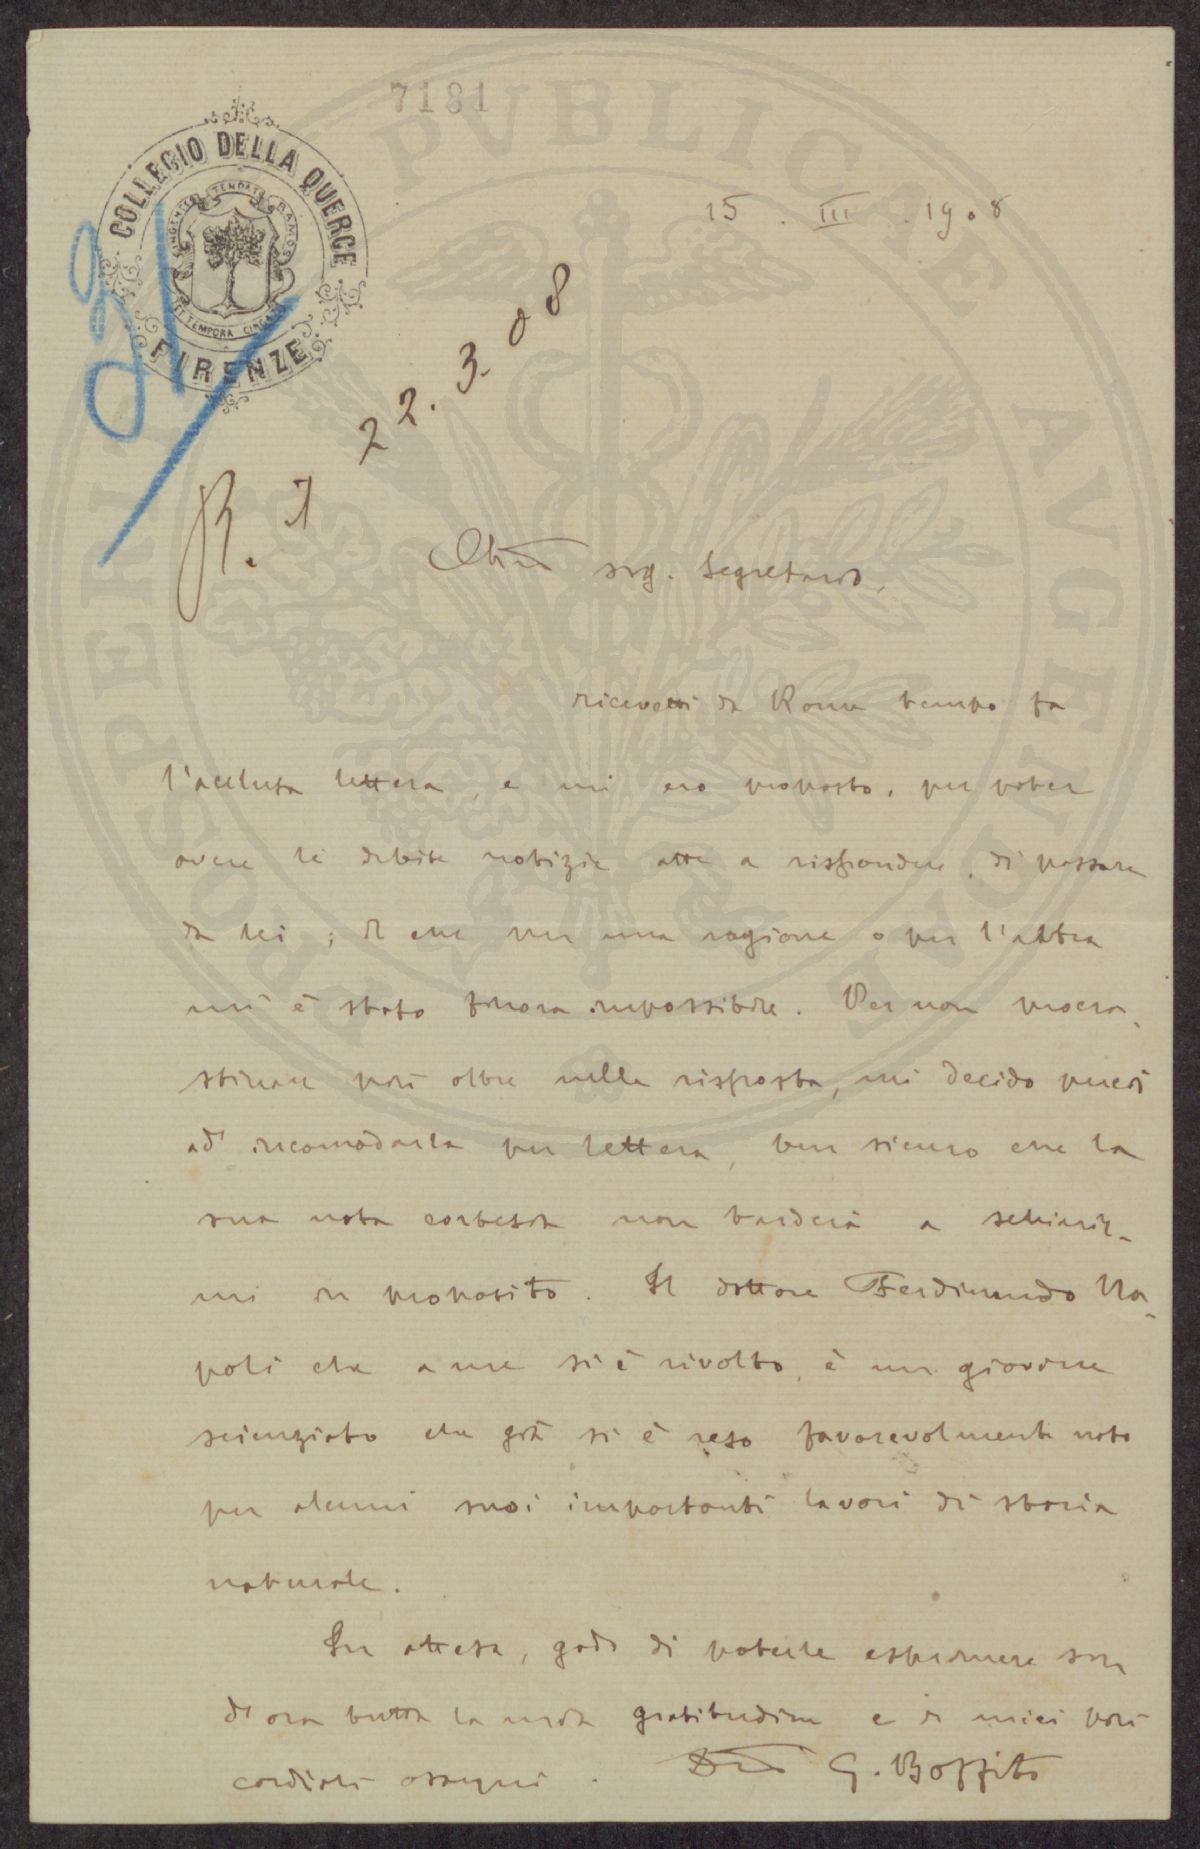 7181
COLLEGIO DELLA QUERCE
INGENTES TENDAT RAMOS
ET TEMPORA CINGAT
FIRENZE
15. III. 1908
R. I 22.3.08
Ch.mo sig. Segretario,
ricevetti da Roma tempo fa
l'acclusa lettera, e mi ero proposto, per poter
avere le debite notizie atte a rispondere, di passare
da lei; il che per una ragione o per l'altra
mi è stato finora impossibile. Per non procra-
stinare più oltre nella risposta, mi decido perciò
ad incomodarla per lettera, ben sicuro che la
sua nota cortesia non tarderà a schiarir-
mi in proposito. Il dottore Ferdinando Na-
poli che a me si è rivolto, è un giovane
scienziato che già si è reso favorevolmente noto
per alcuni suoi importanti lavori di storia
naturale.
In attesa, godo di poterle esprimere sin
d'ora tutta la mia gratitudine e i miei più
cordiali ossequi. Dev.mo G. Boffito
PROSPERITATI PVBLICAE AVGENDAE